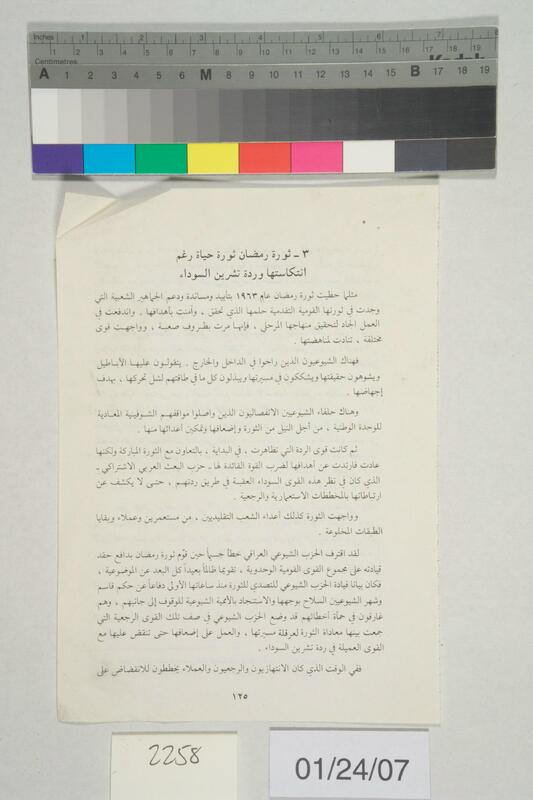 Inches 1 2 3 4 5 6 7 8
Centimetres 1 2 3 4 5 6 7 8 9 10 11 12 13 14 15 16 17 18 19
Kodak
A 1 2 3 4 5 6 M 8 9 10 11 12 13 14 15 B 17 18 19
٣ ـ ثورة رمضان ثورة حياة رغم
انتكاستها وردة تشرين السوداء
مثلما حظيت ثورة رمضان عام ١٩٦٣ بتأييد ومساندة ودعم الجماهير الشعبية التي
وجدت في ثورتها القومية التقدمية حلمها الذي تحقق ، وآمنت بأهدافها . واندفعت في
العمل الجاد لتحقيق منهاجها المرحلي ، فإنها مرت بظروف صعبة ، وواجهت قوى
مختلفة ، تنادت لمناهضتها .
فهناك الشيوعيون الذين راحوا في الداخل والخارج . يتقولون عليها الأباطيل
ويشوهون حقيقتها ويشككون في مسيرتها ويبذلون كل ما في طاقتهم لشل تحركها ، بهدف
إجهاضها .
وهناك حلفاء الشيوعيين الانفصاليون الذين واصلوا مواقفهم الشوفينية المعادية
للوحدة الوطنية ، من أجل النيل من الثورة وإضعافها وتمكين أعدائها منها .
ثم كانت قوى الردة التي تظاهرت ، في البداية ، بالتعاون مع الثورة المباركة ولكنها
عادت فارتدت عن أهدافها لضرب القوة القائدة لها ـ حزب البعث العربي الاشتراكي ـ
الذي كان في نظر هذه القوى السوداء العقبة في طريق ردتهم ، حتى لا يكشف عن
ارتباطاتها بالمخططات الاستعمارية والرجعية .
وواجهت الثورة كذلك أعداء الشعب التقليديين ، من مستعمرين وعملاء وبقايا
الطبقات المخلوعة .
لقد اقترف الحزب الشيوعي العراقي خطأ جسيماً حين قوّم ثورة رمضان بدافع حقد
قيادته على مجموع القوى القومية الوحدوية ، تقويماً ظالماً بعيداً كل البعد عن الموضوعية ،
فكان بيانا قيادة الحزب الشيوعي للتصدي للثورة منذ ساعاتها الأولى دفاعاً عن حكم قاسم
وشهر الشيوعيين السلاح بوجهها والاستنجاد بالأممية الشيوعية للوقوف إلى جانبهم ، وهم
غارقون في حمأة أخطائهم قد وضع الحزب الشيوعي في صف تلك القوى الرجعية التي
جمعت بينها معاداة الثورة لعرقلة مسيرتها ، والعمل على إضعافها حتى تنقض عليها مع
القوى العميلة في ردة تشرين السوداء .
ففي الوقت الذي كان الانتهازيون والرجعيون والعملاء يخططون للانقضاض على
١٢٥
2258
01/24/07